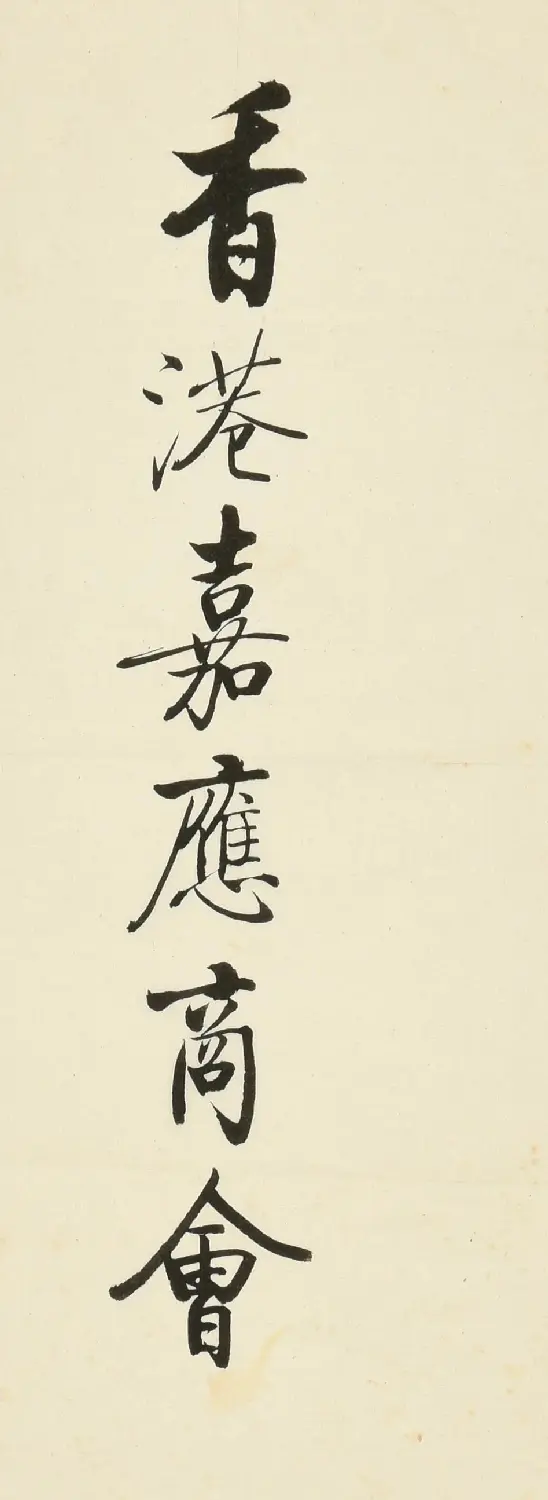 香港嘉應商會